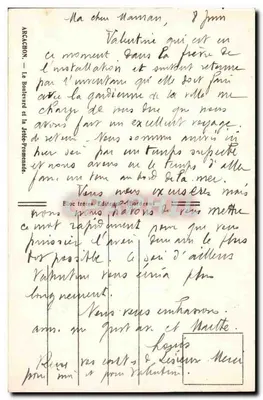 Ma chère Maman, 8 Juin
Valentine qui est en
ce moment dans la fièvre de
l'installation et surtout retenue
par l'inventaire qu'elle doit faire
avec la gardienne de la ville me
charge de vous dire que nous
avons fait un excellent voyage
de retour. Nous sommes arrivés ici
hier soir par un temps superbe
et nous avons eu le temps d'aller
faire un tour au bord de la mer.
Vous nous excuserez mais
nous nous hâtons de vous mettre
ce mot rapidement pour que vous
puissiez l'avoir demain le plus
tôt possible. Ce soir d'ailleurs
Valentine vous écrira plus
longuement.
Nous vous embrassons
ainsi que Gustave et Marthe.
Louis
Reçu vos cartes de Lisieux Merci
pour moi et pour Valentine.
ARCACHON. - Le Boulevard et la Jetée-Promenade.